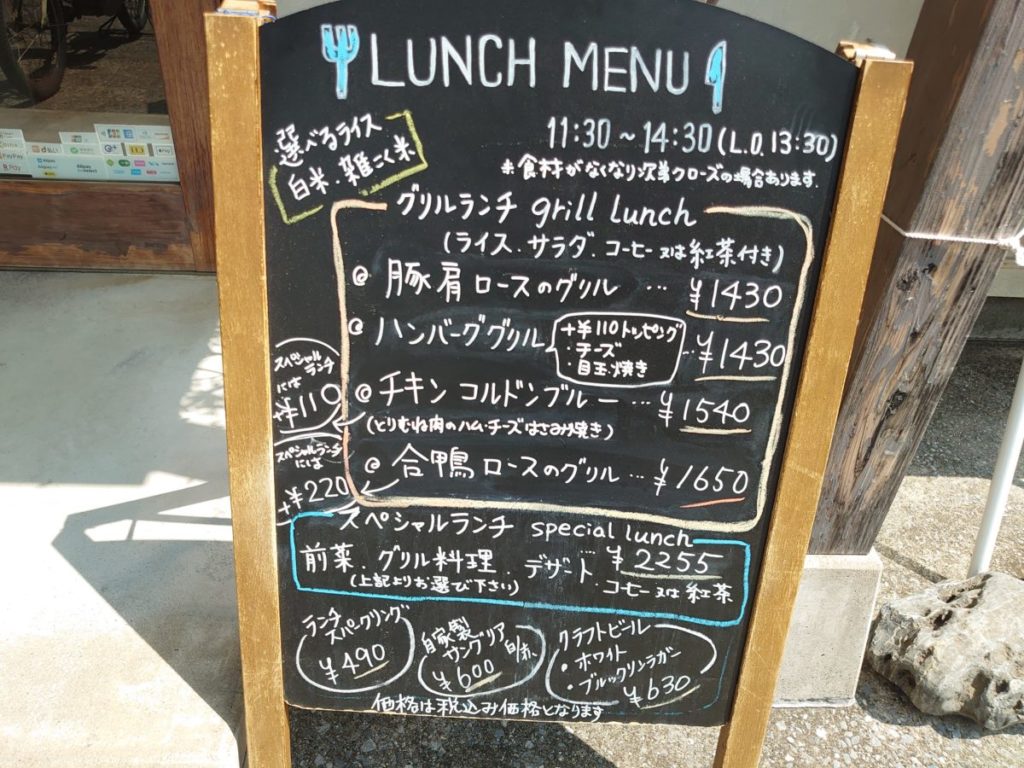 LUNCH MENU
11:30～14:30(L.O.13:30)
※食材がなくなり次第クローズの場合あります.
選べるライス
白米.雑こく米
グリルランチ grill lunch
(ライス.サラダ.コーヒー又は紅茶付き)
@豚肩ロースのグリル…¥1430
@ハンバーググリル…¥1430
+¥110トッピング
・チーズ
・目玉焼き
@チキンコルドンブルー…¥1540
(とりむね肉のハム・チーズはさみ焼き)
スペシャルランチ
には
+¥110
@合鴨ロースのグリル…¥1650
スペシャルランチ
には
+¥220
スペシャルランチ special lunch
…¥2255
前菜.グリル料理.デザート.コーヒー又は紅茶
(上記よりお選び下さい)
ランチ
スパークリング
¥490
自家製
サングリア白/赤
¥600
クラフトビール
・ホワイト
・ブルックリンラガー
¥630
価格は税込み価格となります
PayPay
R Pay